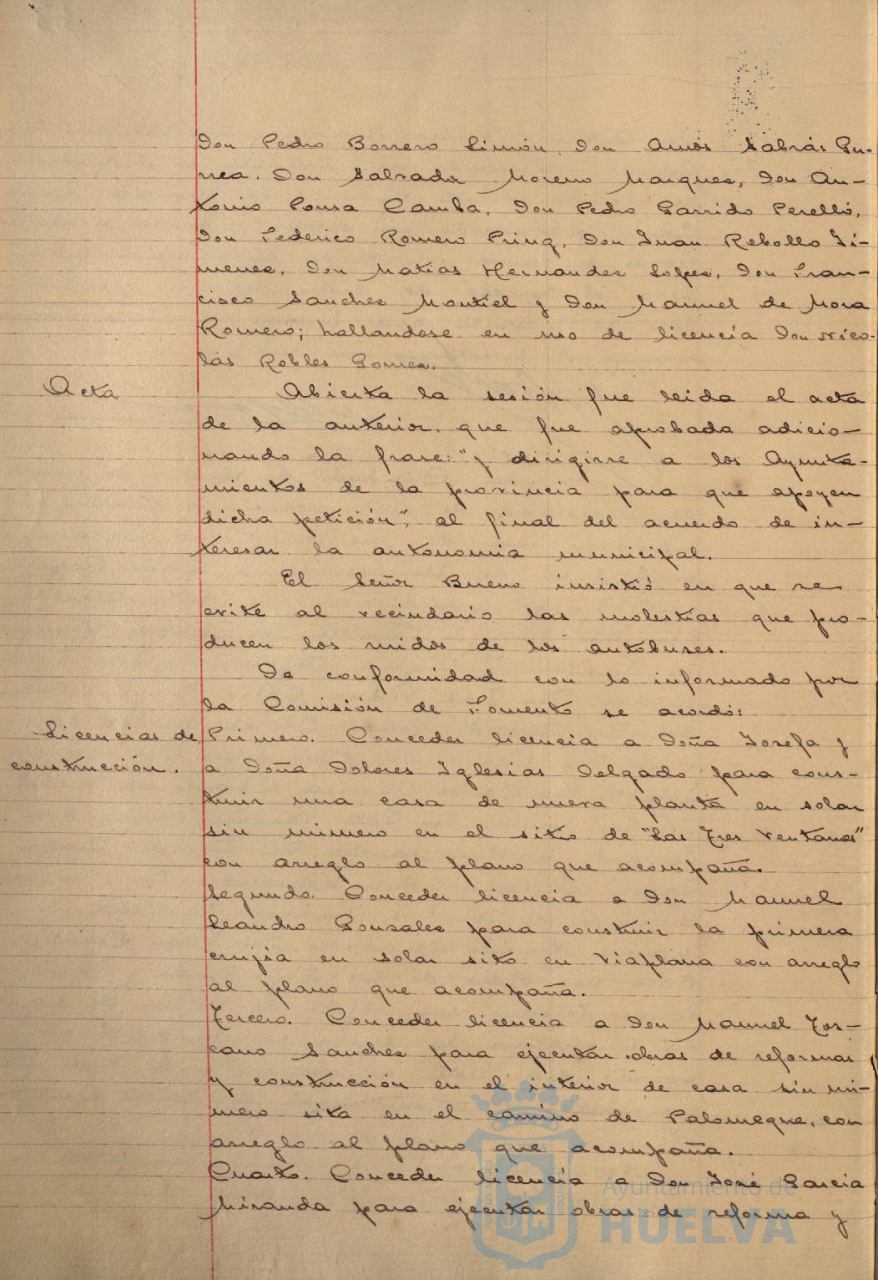 Don Pedro Borrero Limón, Don Amós Sabrás Gu-
rrea, Don Salvador Moreno Marquez, Don An-
tonio Pousa Camba, Don Pedro Garrido Perelló,
Don Federico Romero Prinq, Don Juan Rebollo Ji-
menez, Don Matías Hernandez Lopez, Don Fran-
cisco Sanchez Montiel y Don Manuel de Mora
Romero; hallandose en uso de licencia Don Nico-
lás Robles Gomez.
Acta
Abierta la sesión fue leida el acta
de la anterior, que fue aprobada adicio-
nando la frase: "y dirigirse a los Ayunta-
mientos de la provincia para que apoyen
dicha petición", al final del acuerdo de in-
teresar la autonomia municipal.
El Señor Bueno insistió en que se
evite al vecindario las molestias que pro-
ducen los ruidos de los autobuses.
De conformidad con lo informado por
la Comisión de Fomento se acordó:
Licencias de
construcción.
Primero. Conceder licencia a Doña Josefa y
a Doña Dolores Iglesias Delgado para cons-
truir una casa de nueva planta en solar
sin número en el sitio de "Las Tres Ventanas"
con arreglo al plano que acompaña.
Segundo. Conceder licencia a Don Manuel
Leandro Gonzalez para construir la primera
crujía en solar sito en Viaplana con arreglo
al plano que acompaña.
Tercero. Conceder licencia a Don Manuel Tos-
cano Sanchez para ejecutar obras de reformas
y construcción en el interior de casa sin nú-
mero sita en el camino de Palomeque, con
arreglo al plano que acompaña.
Cuarto. Conceder licencia a Don José Garcia
Miranda para ejecutar obras de reforma y
Ayuntamiento de
HUELVA